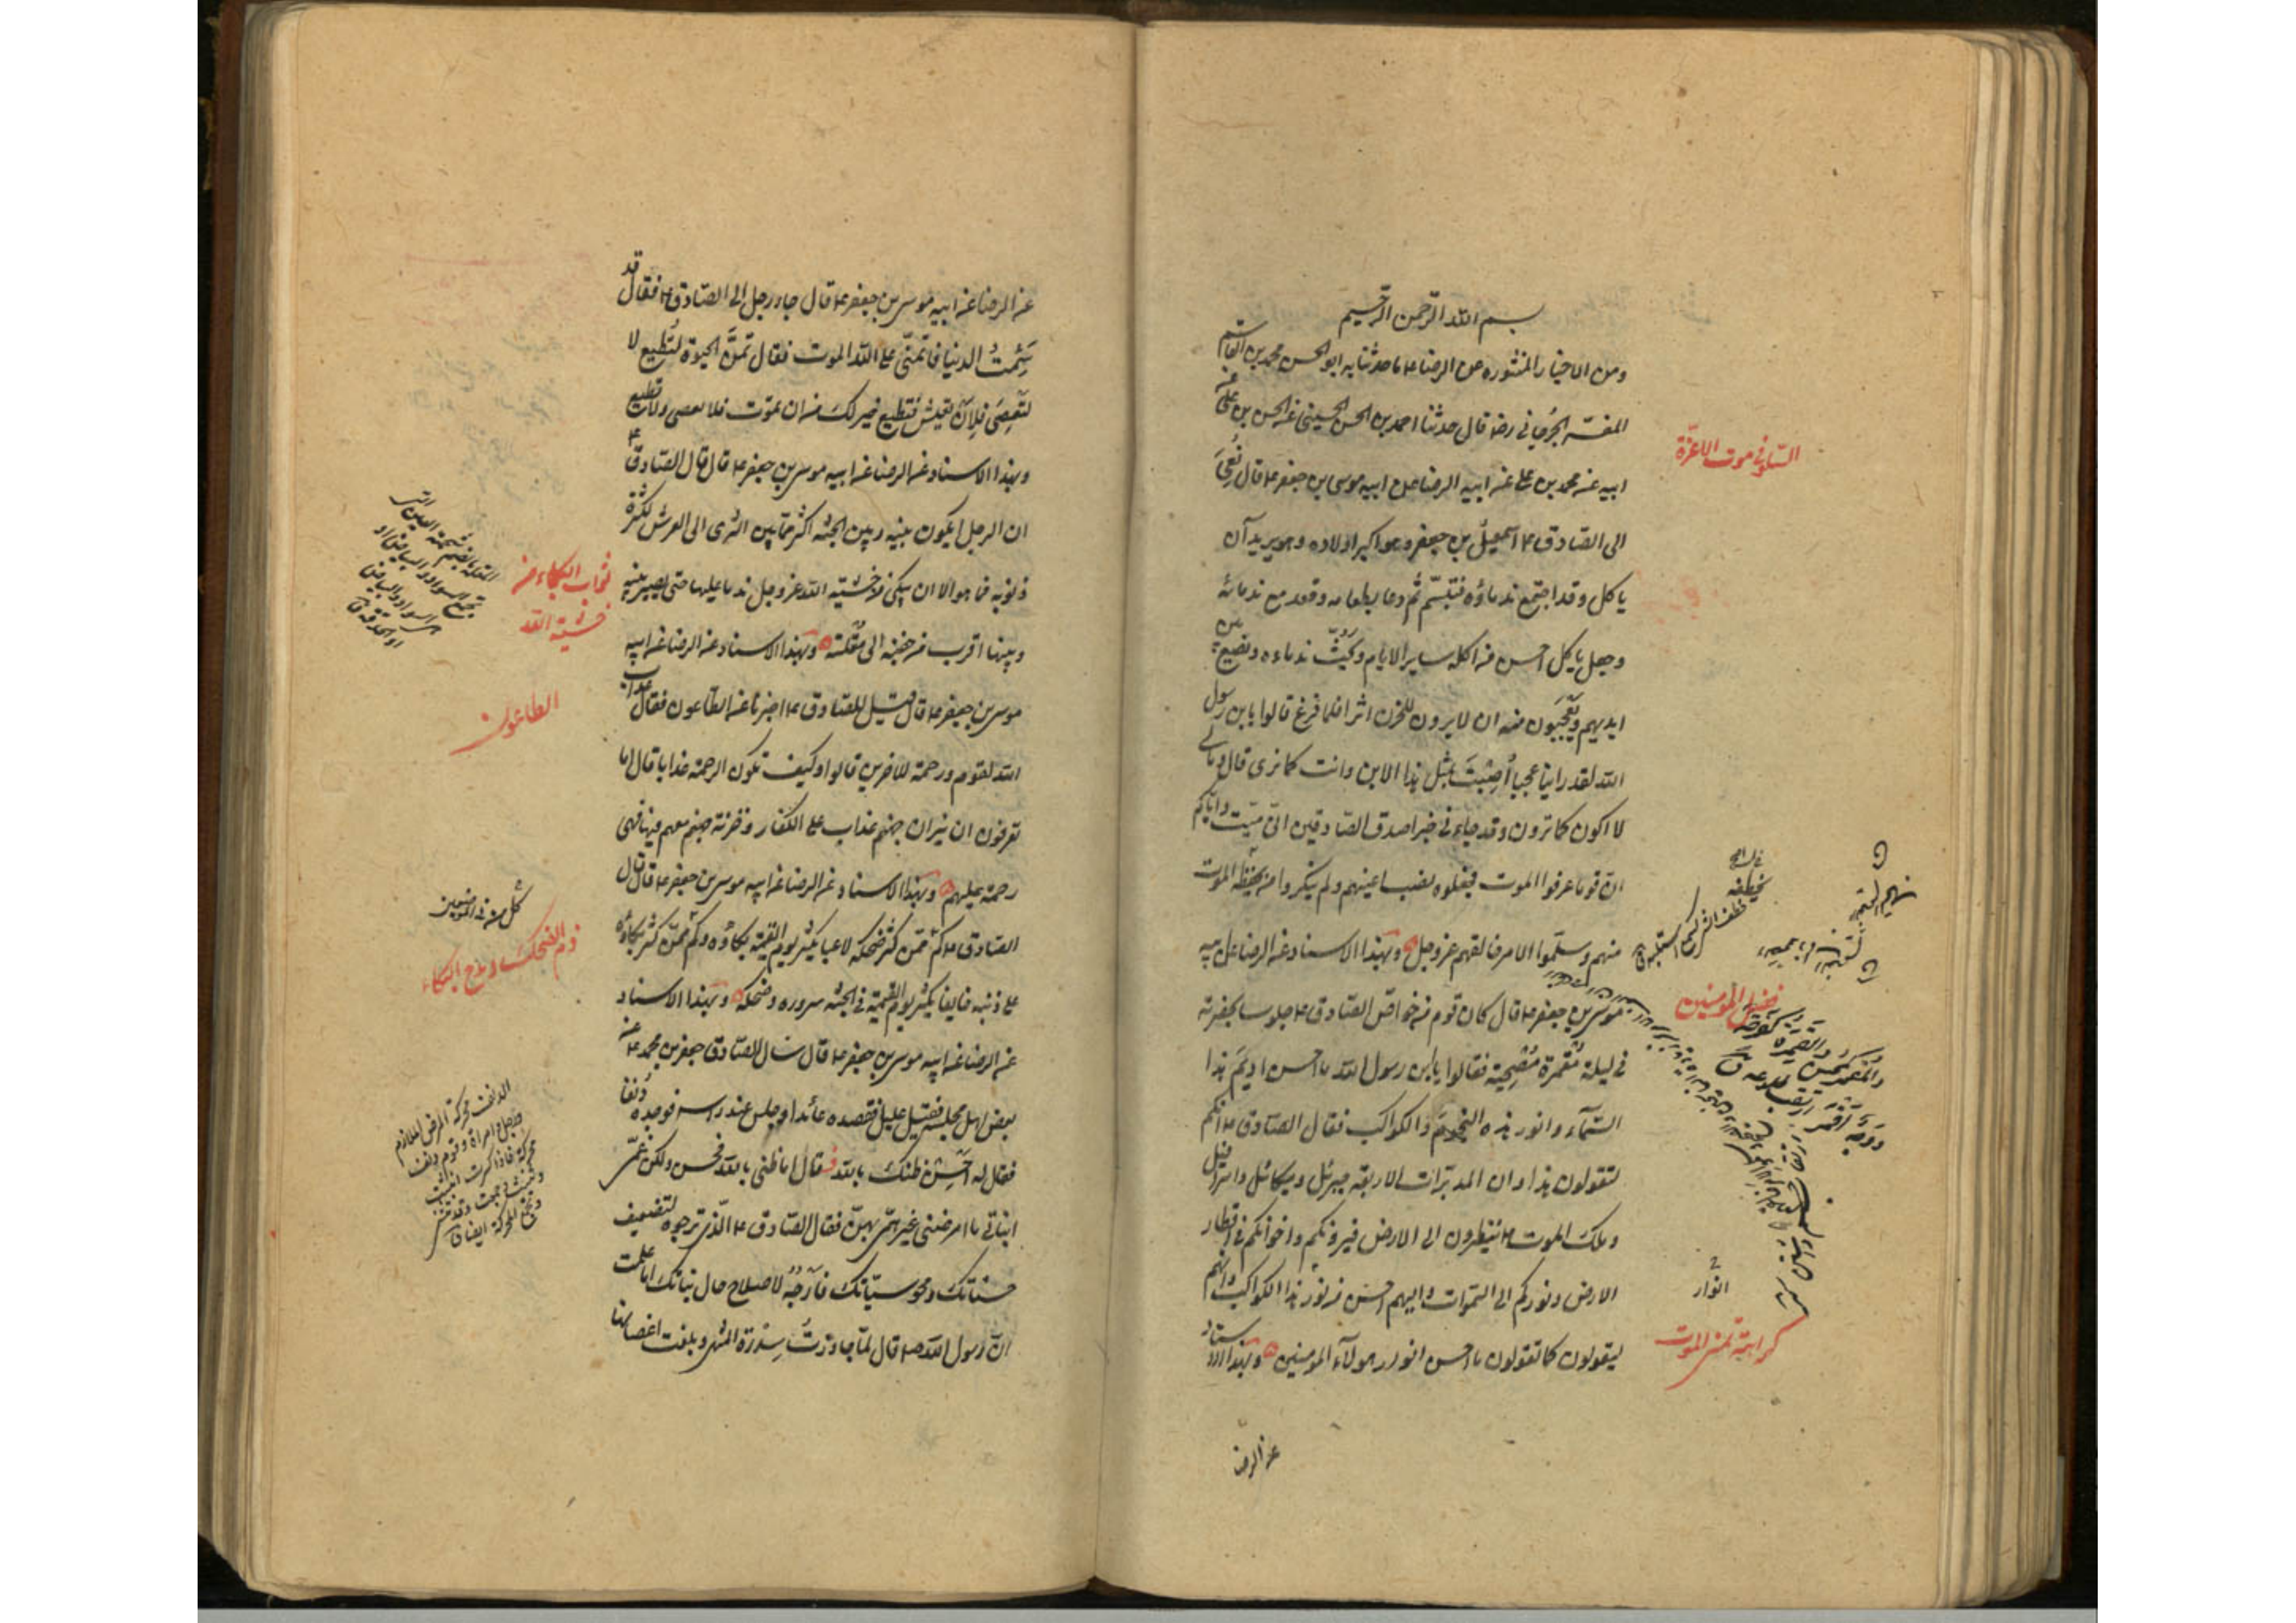 بسم الله الرحمن الرحيم
ومن الاخبار المنثوره عن الرضا ع ما حدثنا به ابو الحسن محمد بن القاسم
المفسر الجرجاني رضه قال حدثنا احمد بن الحسن الحسيني عن الحسن بن علي عن
ابيه عن محمد بن علي عن ابيه الرضا عن ابيه موسى بن جعفر ع قال نُعِيَ
الى الصادق ع اسمعيل بن جعفر وهو اكبر اولاده وهو يريد ان
ياكل وقد اجتمع ندماؤه فتبسّم ثم دعا بطعامه وقعد مع ندمائه
وجعل ياكل احسن من اكله ساير الايام ويحثّ ندماءه ويضع بين
ايديهم ويعجبون منه ان لا يرون للحزن اثرا فلما فرغ قالوا يابن رسول
الله لقد راينا عجبا أُصِبْتَ بمثل هذا الابن وانت كما نرى قال ومالي
لا اكون كما ترون وقد جاء في خبر اصدق الصادقين انّي ميّت واياكم
انّ قوما عرفوا الموت فجعلوه نصب اعينهم ولم ينكروا من يخطفه الموت
منهم وسلّموا لامر خالقهم عز وجل وبهذا الاسناد عن الرضا عن ابيه
موسى بن جعفر ع قال كان قوم من خواصّ الصادق ع جلوسا بحضرته
في ليلة مُقمرة مُضحِية فقالوا يابن رسول الله ما احسن اديمَ هذا
السّمآء وانور هذه النجومَ والكواكب فقال الصادق ع انكم
لتقولون هذا وان المدبّرات الاربعة جبرئل وميكائل واسرافيل
وملك الموت ع ينظرون الى الارض فيرونكم واخوانكم في اقطار
الارض ونوركم الى السموات واليهم احسن من نور هذا الكواكب وانهم
ليقولون كما تقولون ما احسن انوار هولآء المومنين وبهذا الاسناد
عن الرضا
السّلو في موت الاعزّة
يخطفه
فضل المومنين
انوار
كراهة تمنى الموت
عن الرضا عن ابيه موسى بن جعفر ع قال جاء رجل الى الصادق ع فقال قد
سَئِمتُ الدنيا فاتمنّى على الله الموت فقال تمنَّ الحيوة لتُطيع لا
لتَعصِيَ فلِاَنْ تعيش فتطيع خير لك من ان تموت فلا تعصى ولا تطيع
وبهذا الاسناد عن الرضا عن ابيه موسى بن جعفر ع قال قال الصادق ع
ان الرجل ليكون بينه وبين الجنة اكثر ممّا بين الثرى الى العرش لكثرة
ذنوبه فما هو الا ان يبكي من خشية الله عز وجل ندما عليها حتى يصير بينه
وبينها اقرب من جفنه الى مُقلته وبهذا الاسناد عن الرضا عن ابيه
موسى بن جعفر ع قال قيل للصادق ع اخبرنا عن الطاعون فقال عذاب
الله لقوم ورحمة لاخرين قالوا وكيف تكون الرحمة عذابا قال اما
تعرفون ان نيران جهنم عذاب على الكفار وخزنة جهنم معهم فيها فهي
رحمة عليهم وبهذا الاسناد عن الرضا عن ابيه موسى بن جعفر ع قال قال
الصادق ع كم ممّن كثر ضحكه لاعبا يكثر يوم القيمة بكاؤه وكم ممّن كثر بكاؤه
على ذنبه خايفا يكثر يوم القيمة في الجنة سروره وضحكه وبهذا الاسناد
عن الرضا عن ابيه موسى بن جعفر ع قال سال الصادق جعفر بن محمد ع عن
بعض اهل مجلسه فقيل عليل فقصده عائدا وجلس عند راسه فوجده دنفا
فقال له احسن ظنك بالله قال اما ظني بالله فحسن ولكن غمّي
لبناتي ما امرضني غير همّي بهنّ فقال الصادق ع الّذي ترجوه لتضعيف
حسناتك ومحو سيّاتك فارْجُه لاصلاح حال بناتك اما علمت
انّ رسول الله ص قال لمّا جاوزتُ سِدرة المنتهى وبلغت اغصانها
ثواب البكاء من
خشية الله
الطاعون
كل من في الموضعين
ذم الضحك ومدح البكاء
الدنف محركة المرض الملازم